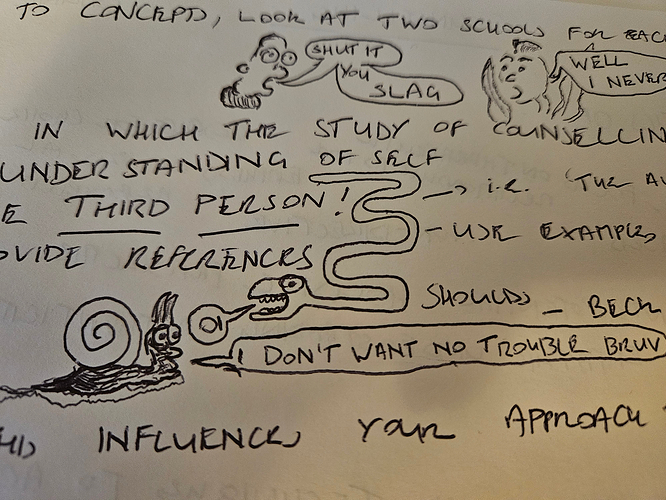 TO CONCEPTS, LOOK AT TWO SCHOOLS FOR EACH
SHUT IT
YOU
SLAG
WELL
I NEVER
IN WHICH THE STUDY OF COUNSELLIN
UNDERSTANDING OF SELF
E THIRD PERSON! -> i.e. 'THE AU
OVIDE REFERENCES - USE EXAMPLES
SHOULDS - BECK
OI
I DON'T WANT NO TROUBLE BRUV
HIS INFLUENCES YOUR APPROACH